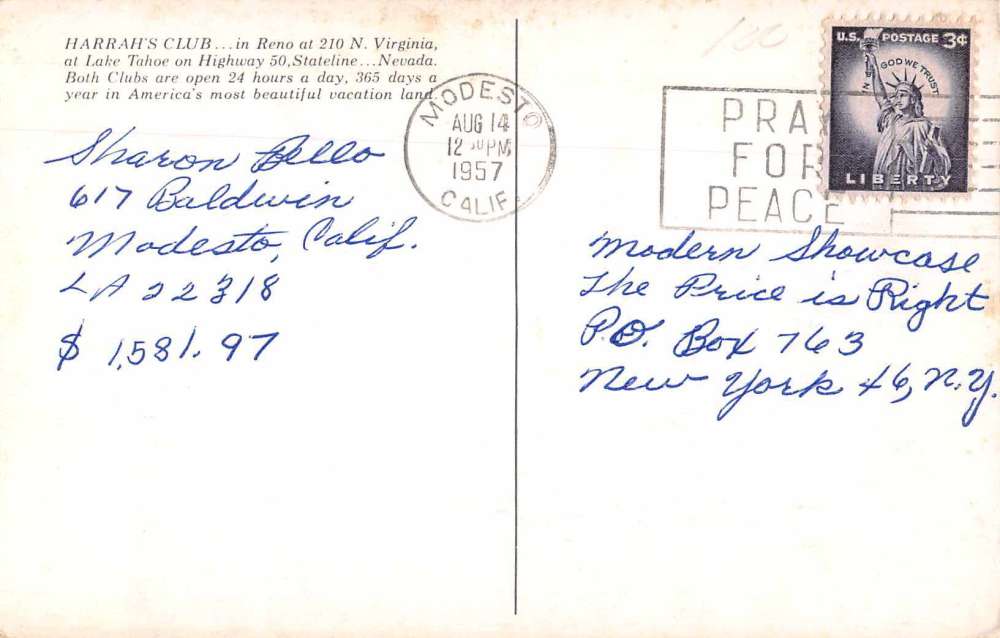 HARRAH'S CLUB...in Reno at 210 N. Virginia,
at Lake Tahoe on Highway 50,Stateline...Nevada.
Both Clubs are open 24 hours a day, 365 days a
year in America's most beautiful vacation land.
Sharon Bello
617 Baldwin
Modesto, Calif.
LA 22318
$ 1,581.97
MODESTO
AUG 14
12 PM
1957
CALIF.
100
PRA
FOR
PEACE
U.S. POSTAGE 3¢
IN GOD WE TRUST
LIBERTY
Modern Showcase
The Price is Right
P.O. Box 763
New York 46, N.Y.